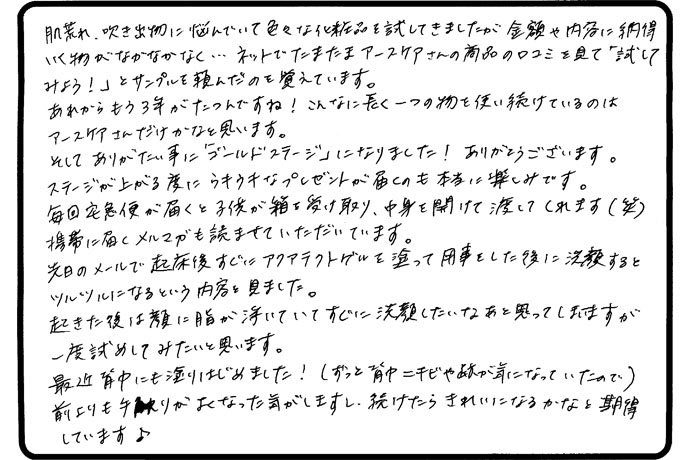 肌荒れ、吹き出物に悩んでいて色々な化粧品を試してきましたが金額や内容に納得
いく物がなかなかなく… ネットでたまたまアースケアさんの商品の口コミを見て「試して
みよう！」とサンプルを頼んだのを覚えています。
あれからもう3年がたつんですね！こんなに長く一つの物を使い続けているのは
アースケアさんだけかなと思います。
そしてありがたい事に「ゴールドステージ」になりました！ありがとうございます。
ステージが上がる度にウキウキなプレゼントが届くのも本当に楽しみです。
毎回宅急便が届くと子供が箱を受け取り、中身を開けて渡してくれます(笑)
携帯に届くメルマガも読ませていただいています。
先日のメールで起床後すぐにアクアテクトゲルを塗って用事をした後に洗顔すると
ツルツルになるという内容を見ました。
起きた後は顔に脂が浮いていてすぐに洗顔したいなあと思ってしまいますが
一度試めしてみたいと思います。
最近背中にも塗りはじめました！(ずっと背中ニキビや跡が気になっていたので)
前よりも手触りがよくなった気がしますし、続けたらきれいになるかなと期待
しています♪